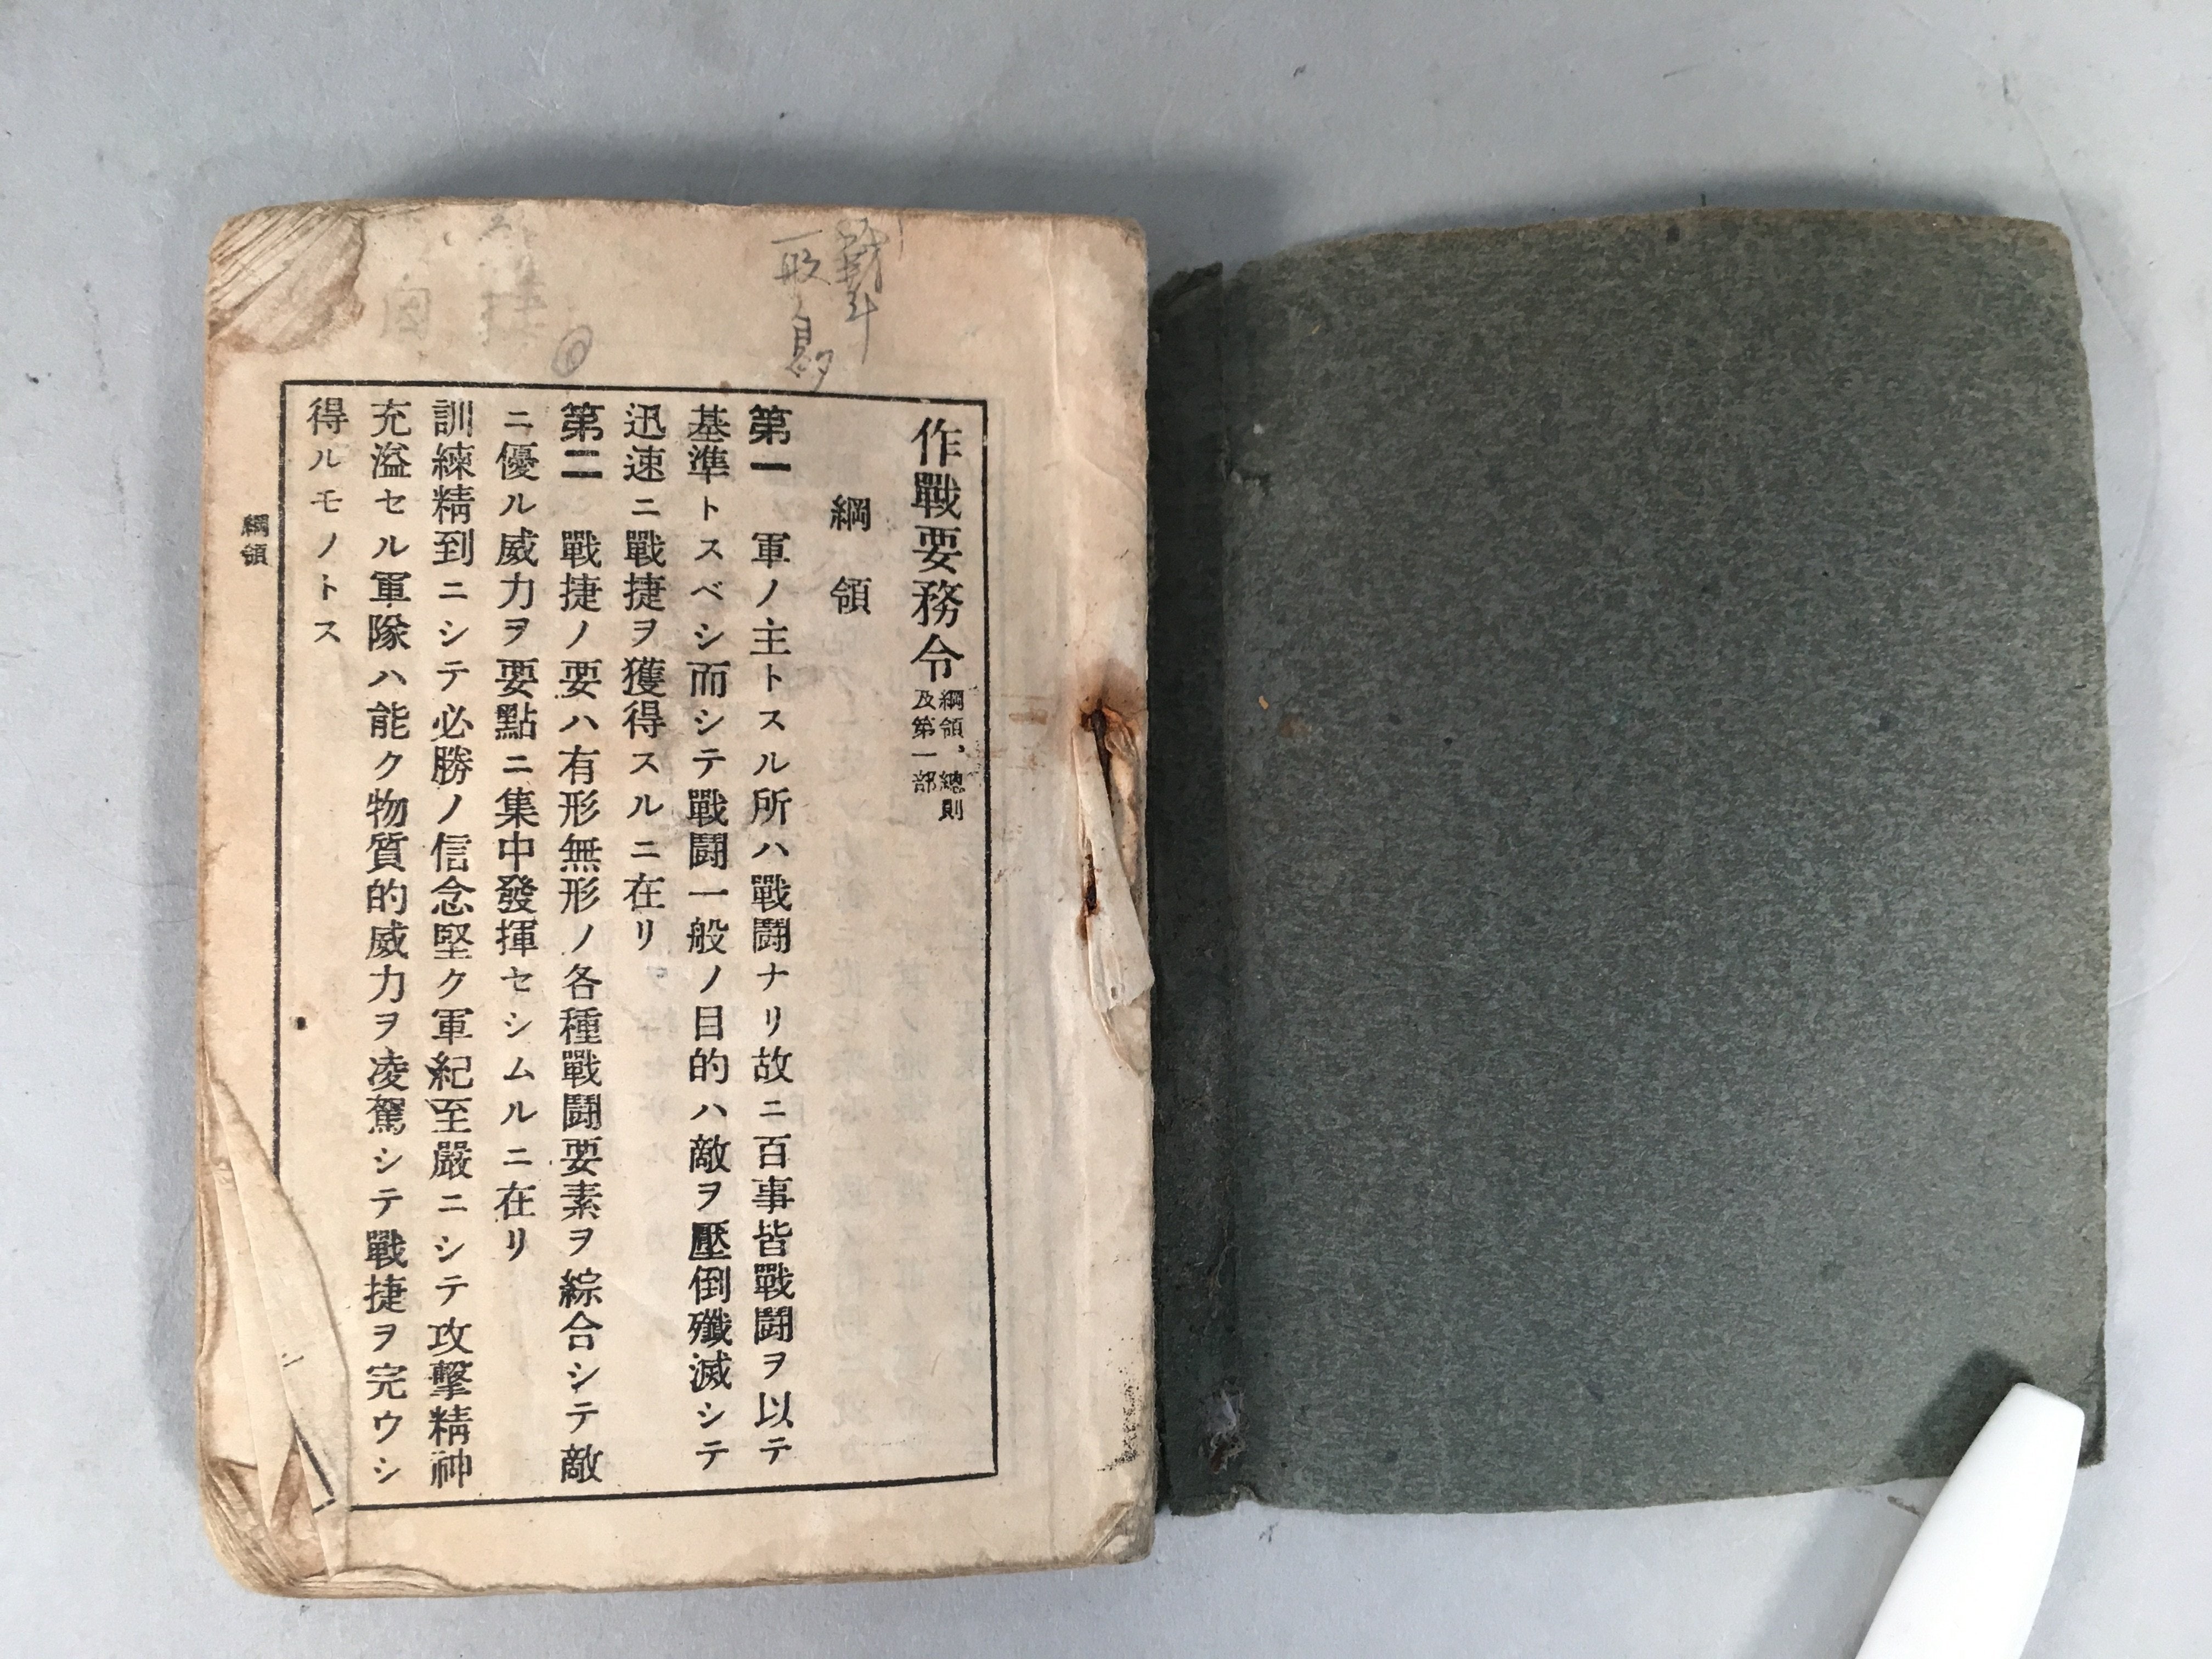 作戰要務令 綱領、總則及第一部
綱領
第一 軍ノ主トスル所ハ戰鬪ナリ故ニ百事皆戰鬪ヲ以テ
基準トスベシ而シテ戰鬪一般ノ目的ハ敵ヲ壓倒殲滅シテ
迅速ニ戰捷ヲ獲得スルニ在リ
第二 戰捷ノ要ハ有形無形ノ各種戰鬪要素ヲ綜合シテ敵
ニ優ル威力ヲ要點ニ集中發揮セシムルニ在リ
訓練精到ニシテ必勝ノ信念堅ク軍紀至嚴ニシテ攻擊精神
充溢セル軍隊ハ能ク物質的威力ヲ凌駕シテ戰捷ヲ完ウシ
得ルモノトス
綱領